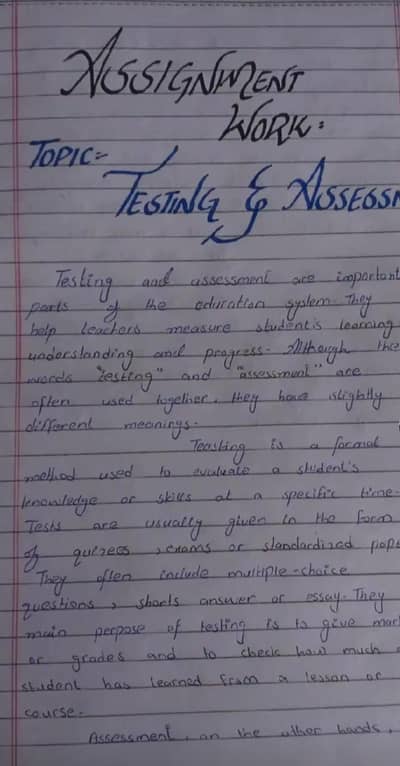 ASSIGNMENT
WORK:
TOPIC:-
TESTING & ASSESSM
Testing and assessment are important
parts of the education system. They
help teachers measure student's learning
understanding and progress. Although the
words "testing" and "assessment" are
often used together, they have slightly
different meanings.
Teasting is a formal
method used to evaluate a student's
knowledge or skills at a specific time.
Tests are usually given in the form
of quizess, exams or standardized pape
They often include multiple-choice
questions, shorts answer or essay. They
main perpose of testing is to give mar
or grades and to check how much
student has learned from a lesson or
course.
Assessment, on the other hands,